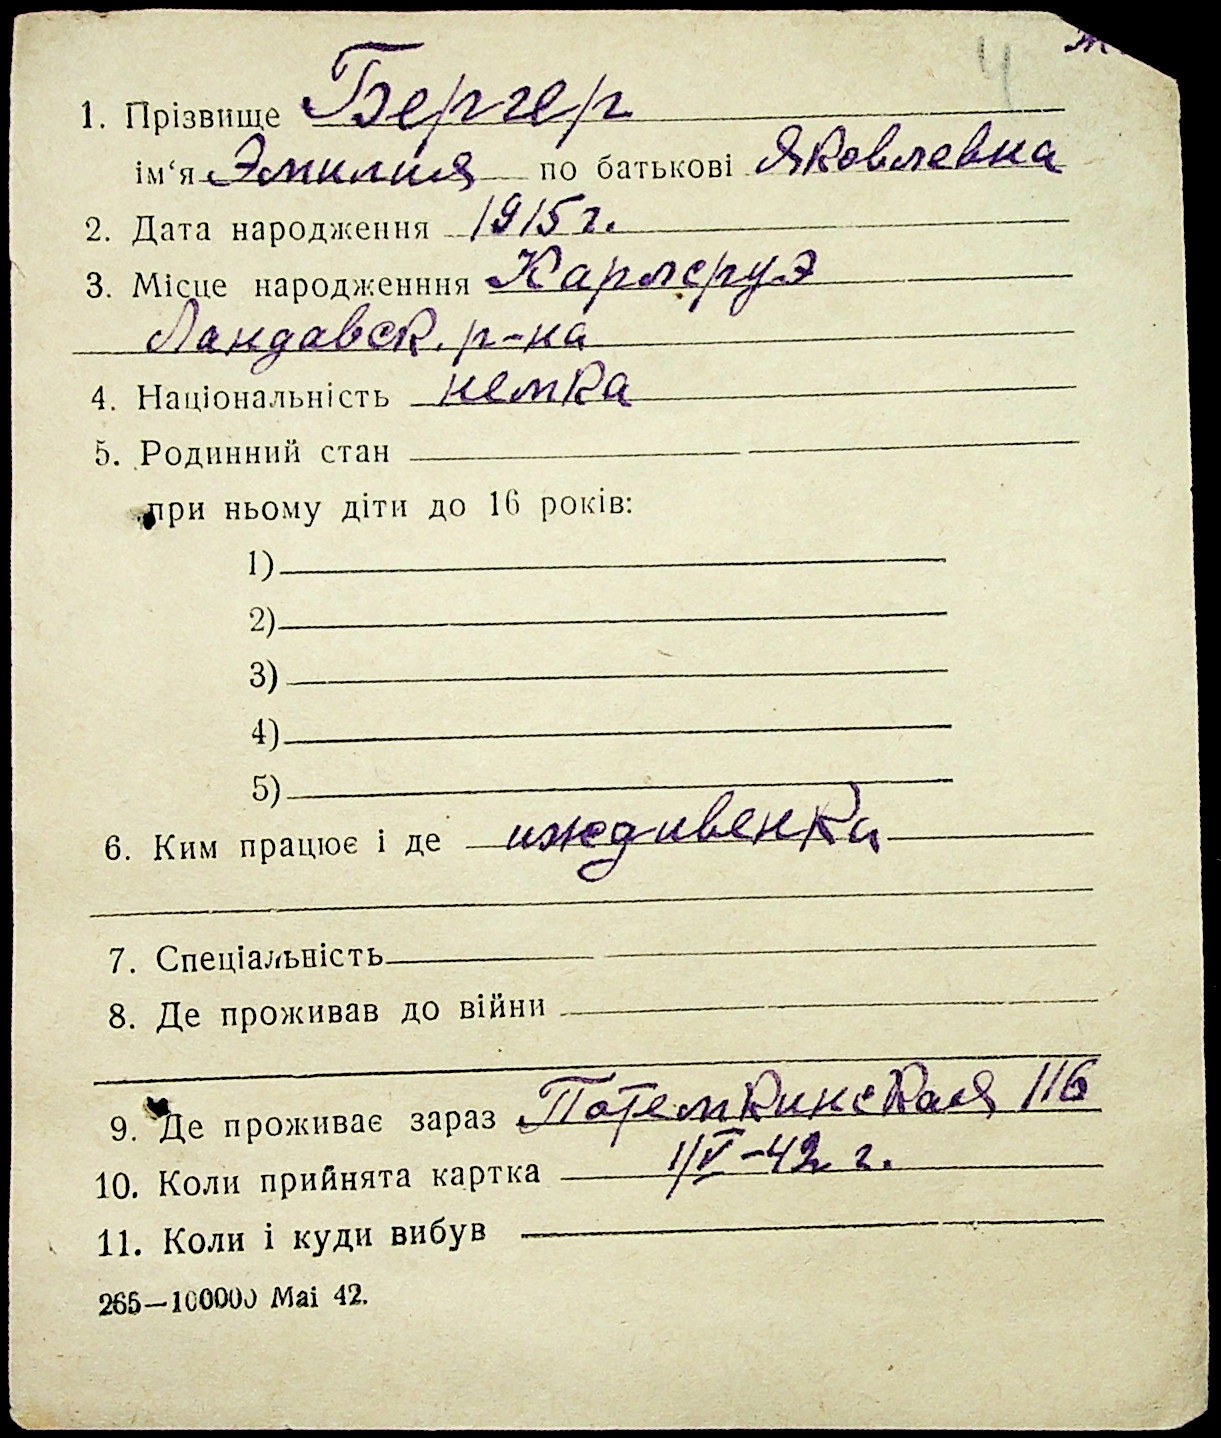 4
1. Прізвище Бергер
ім‘я Эмилия по батькові Яковлевна
2. Дата народження 1915 г.
3. Місце народженння Карлсруэ
Ландавск. р-на
4. Національність немка
5. Родинний стан
при ньому діти до 16 років:
1)
2)
3)
4)
5)
6. Ким працює і де иждивенка
7. Спеціальність
8. Де проживав до війни
9. Де проживає зараз Потемкинская 116
10. Коли прийнята картка 1/V-42 г.
11. Коли і куди вибув
265—100000 Mai 42.